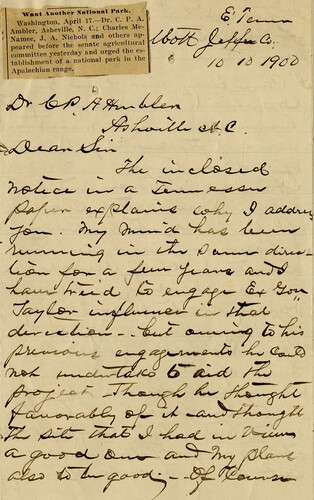 Want Another National Park.
Washington, April 17.—Dr. C. P. A.
Ambler, Asheville, N. C.; Charles Mc-
Namee, J. A. Nichols and others ap-
peared before the senate agricultural
committee yesterday and urged the es-
tablishment of a national park in the
Apalachian range.
E. Tenn
Mott Jeff Co.
10 10 1900
Dr C. P. A Ambler
Ashville N.C.
Dear Sir
The inclosed
notice in a Tennessee
paper explains why I address
you. My mind has been
running in the same direc-
tion for a few years and I
have tried to engage Ex Gov
Taylor influence in that
direction — but owing to his
previous engagements he could
not undertake to aid the
project — Though he thought
favorably of it — and thought
the site that I had in view
a good one and my plans
also to be good; — Of Course